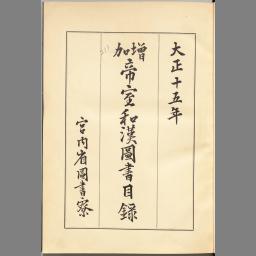 大正十五年
增加帝室和漢圖書目録
宮内省圖書寮